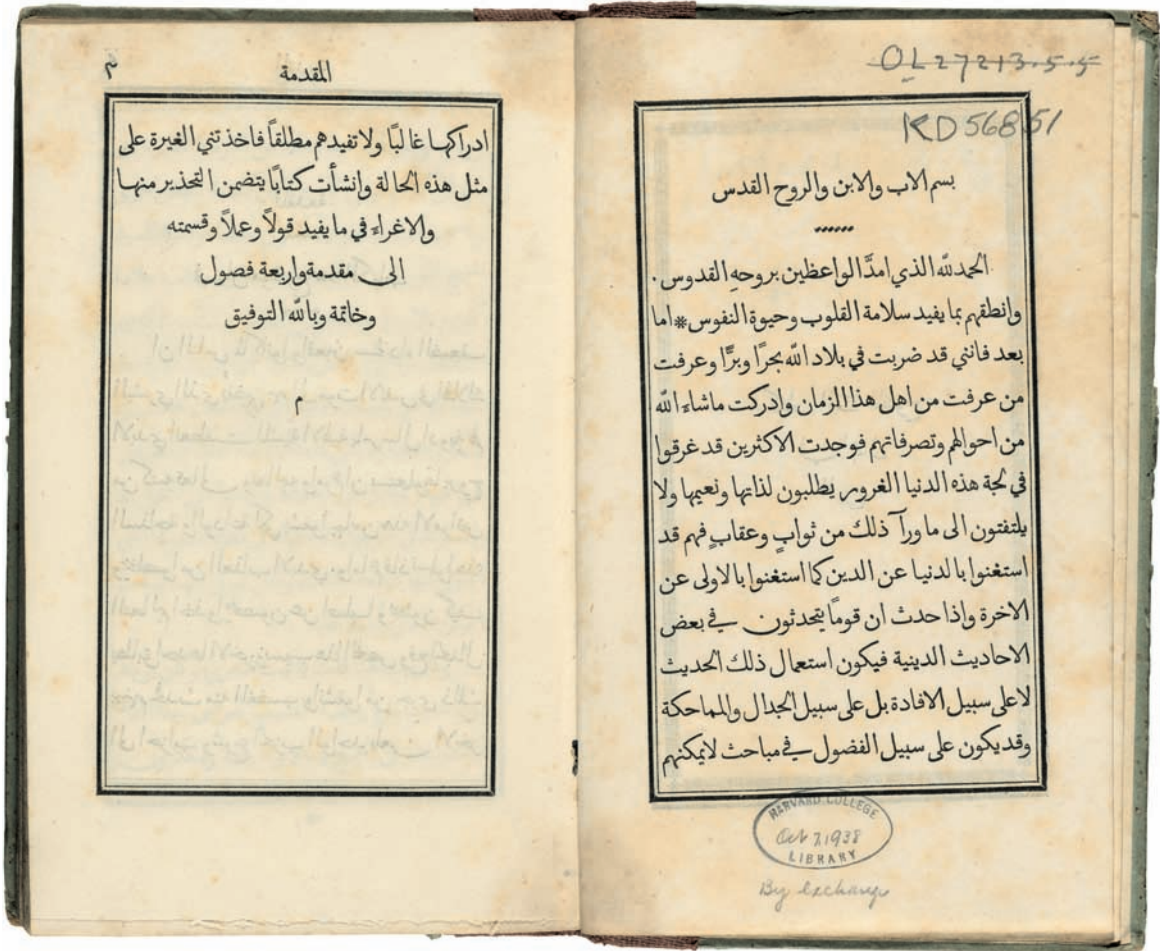 OL 27213.5.5
KD 56851
بسم الاب والابن والروح القدس
الحمد لله الذي امدَّ الواعظين بروحهِ القدوس .
وانطقهم بما يفيد سلامة القلوب وحيوة النفوس * اما
بعد فانني قد ضربت في بلاد الله بحرًا وبرًّا وعرفت
من عرفت من اهل هذا الزمان وادركت ما شاء الله
من احوالهم وتصرفاتهم فوجدت الاكثرين قد غرقوا
في لجة هذه الدنيا الغرور يطلبون لذاتها ونعيمها ولا
يلتفتون الى ما ورآ ذلك من ثوابٍ وعقابٍ فهم قد
استغنوا بالدنيا عن الدين كما استغنوا بالاولى عن
الاخرة واذا حدث ان قومًا يتحدثون في بعض
الاحاديث الدينية فيكون استعمال ذلك الحديث
لا على سبيل الافادة بل على سبيل الجدال والمماحكة
وقد يكون على سبيل الفضول في مباحث لا يمكنهم
HARVARD COLLEGE
Oct 7, 1938
LIBRARY
By exchange
المقدمة
ادراكها غالبًا ولا تفيدهم مطلقًا فاخذتني الغيرة على
مثل هذه الحالة وانشأت كتابًا يتضمن التحذير منها
والاغراء في ما يفيد قولاً وعملاً وقسمته
الى مقدمة واربعة فصول
وخاتمة وبالله التوفيق
م